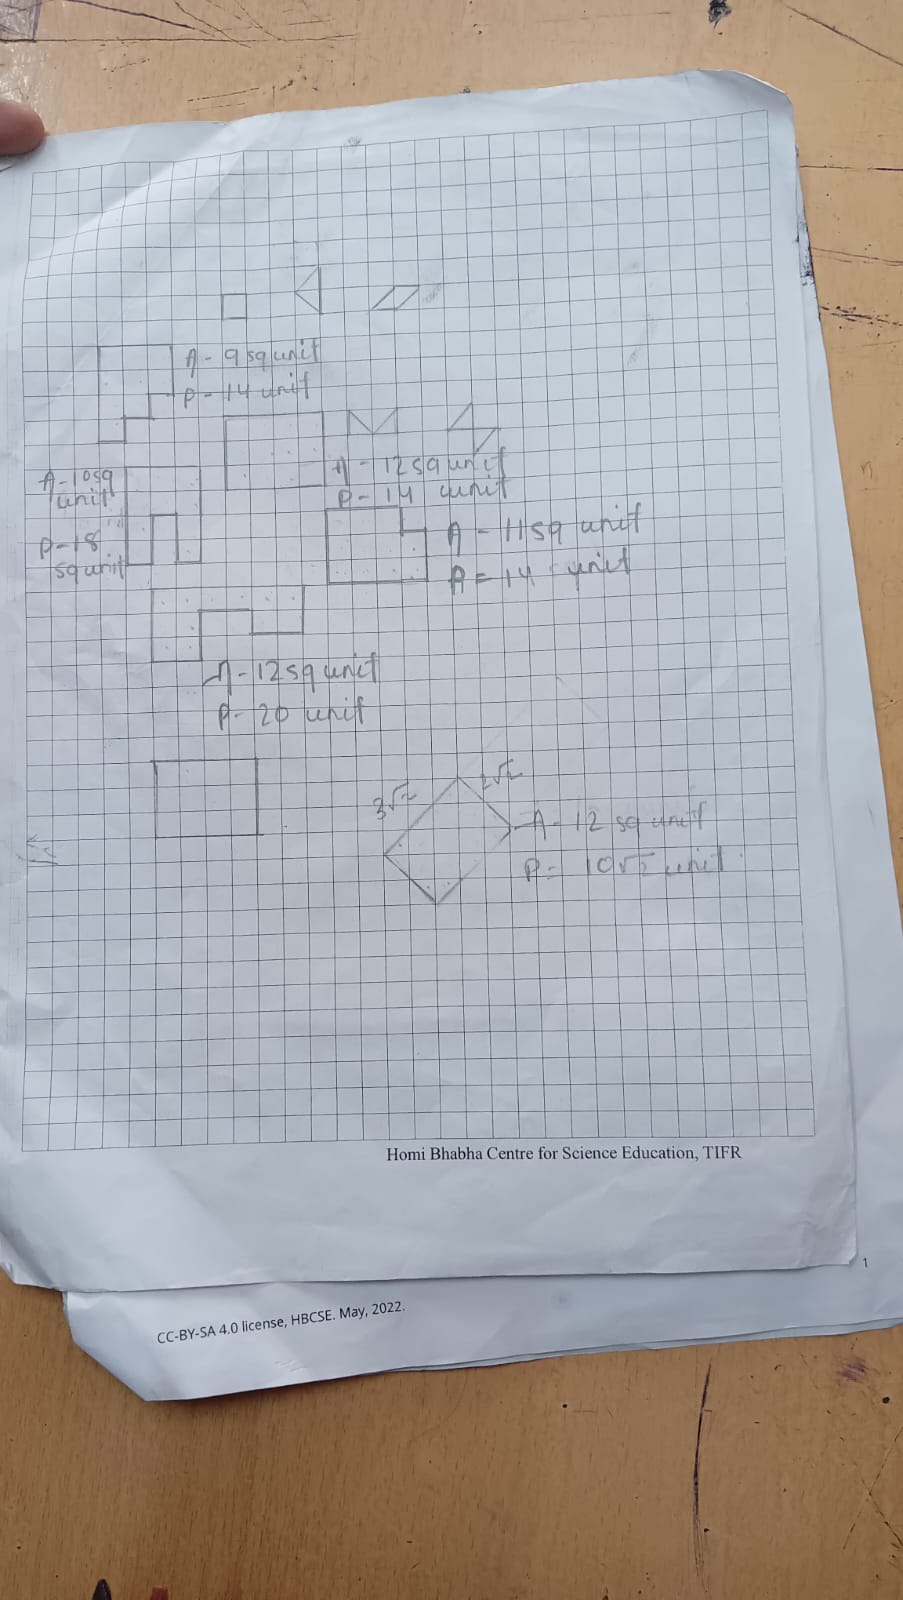 A - 9 sq unit
P - 14 unit
A - 10 sq
unit
P - 18
sq unit
A - 12 sq unit
P - 14 unit
A - 11 sq unit
A = 14 unit
A - 12 sq unit
P - 20 unit
3√2
2√2
A - 12 sq unit
P = 10√2 unit
Homi Bhabha Centre for Science Education, TIFR
1
CC-BY-SA 4.0 license, HBCSE. May, 2022.